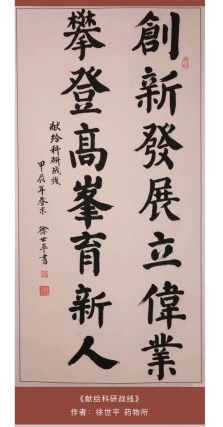 創新發展立偉業
攀登高峯育新人
献给科研战线
甲辰年春末 徐世平書
《献给科研战线》
作者：徐世平 药物所